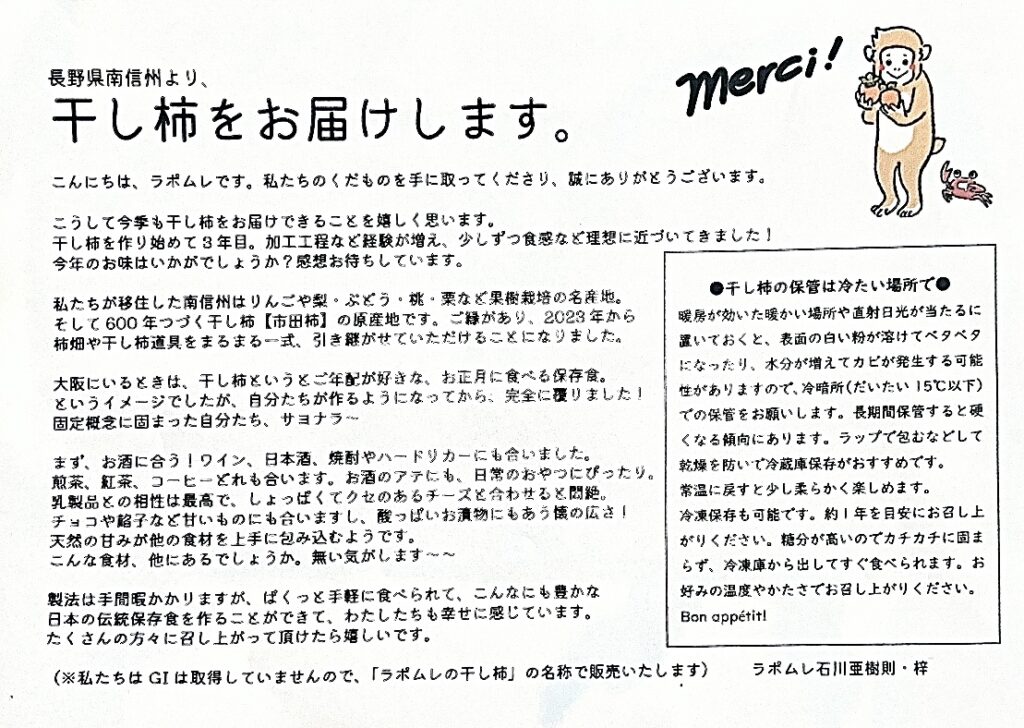 merci!
長野県南信州より、
干し柿をお届けします。
こんにちは、ラポムレです。私たちのくだものを手に取ってくださり、誠にありがとうございます。
こうして今季も干し柿をお届けできることを嬉しく思います。
干し柿を作り始めて3年目。加工工程など経験が増え、少しずつ食感など理想に近づいてきました！
今年のお味はいかがでしょうか？感想お待ちしています。
私たちが移住した南信州はりんごや梨・ぶどう・桃・栗など果樹栽培の名産地。
そして600年つづく干し柿【市田柿】の原産地です。ご縁があり、2023年から
柿畑や干し柿道具をまるまる一式、引き継がせていただけることになりました。
大阪にいるときは、干し柿というとご年配が好きな、お正月に食べる保存食。
というイメージでしたが、自分たちが作るようになってから、完全に覆りました！
固定概念に固まった自分たち、サヨナラ～
まず、お酒に合う！ワイン、日本酒、焼酎やハードリカーにも合いました。
煎茶、紅茶、コーヒーどれも合います。お酒のアテにも、日常のおやつにぴったり。
乳製品との相性は最高で、しょっぱくてクセのあるチーズと合わせると悶絶。
チョコや餡子など甘いものにも合いますし、酸っぱいお漬物にもあう懐の広さ！
天然の甘みが他の食材を上手に包み込むようです。
こんな食材、他にあるでしょうか。無い気がします～～
製法は手間暇かかりますが、ぱくっと手軽に食べられて、こんなにも豊かな
日本の伝統保存食を作ることができて、わたしたちも幸せに感じています。
たくさんの方々に召し上がって頂けたら嬉しいです。
（※私たちはGIは取得していませんので、「ラポムレの干し柿」の名称で販売いたします）
ラポムレ石川亜樹則・梓
●干し柿の保管は冷たい場所で●
暖房が効いた暖かい場所や直射日光が当たるに
置いておくと、表面の白い粉が溶けてベタベタ
になったり、水分が増えてカビが発生する可能
性がありますので、冷暗所（だいたい15℃以下）
での保管をお願いします。長期間保管すると硬
くなる傾向にあります。ラップで包むなどして
乾燥を防いで冷蔵庫保存がおすすめです。
常温に戻すと少し柔らかく楽しめます。
冷凍保存も可能です。約1年を目安にお召し上
がりください。糖分が高いのでカチカチに固ま
らず、冷凍庫から出してすぐ食べられます。お
好みの温度やかたさでお召し上がりください。
Bon appétit!